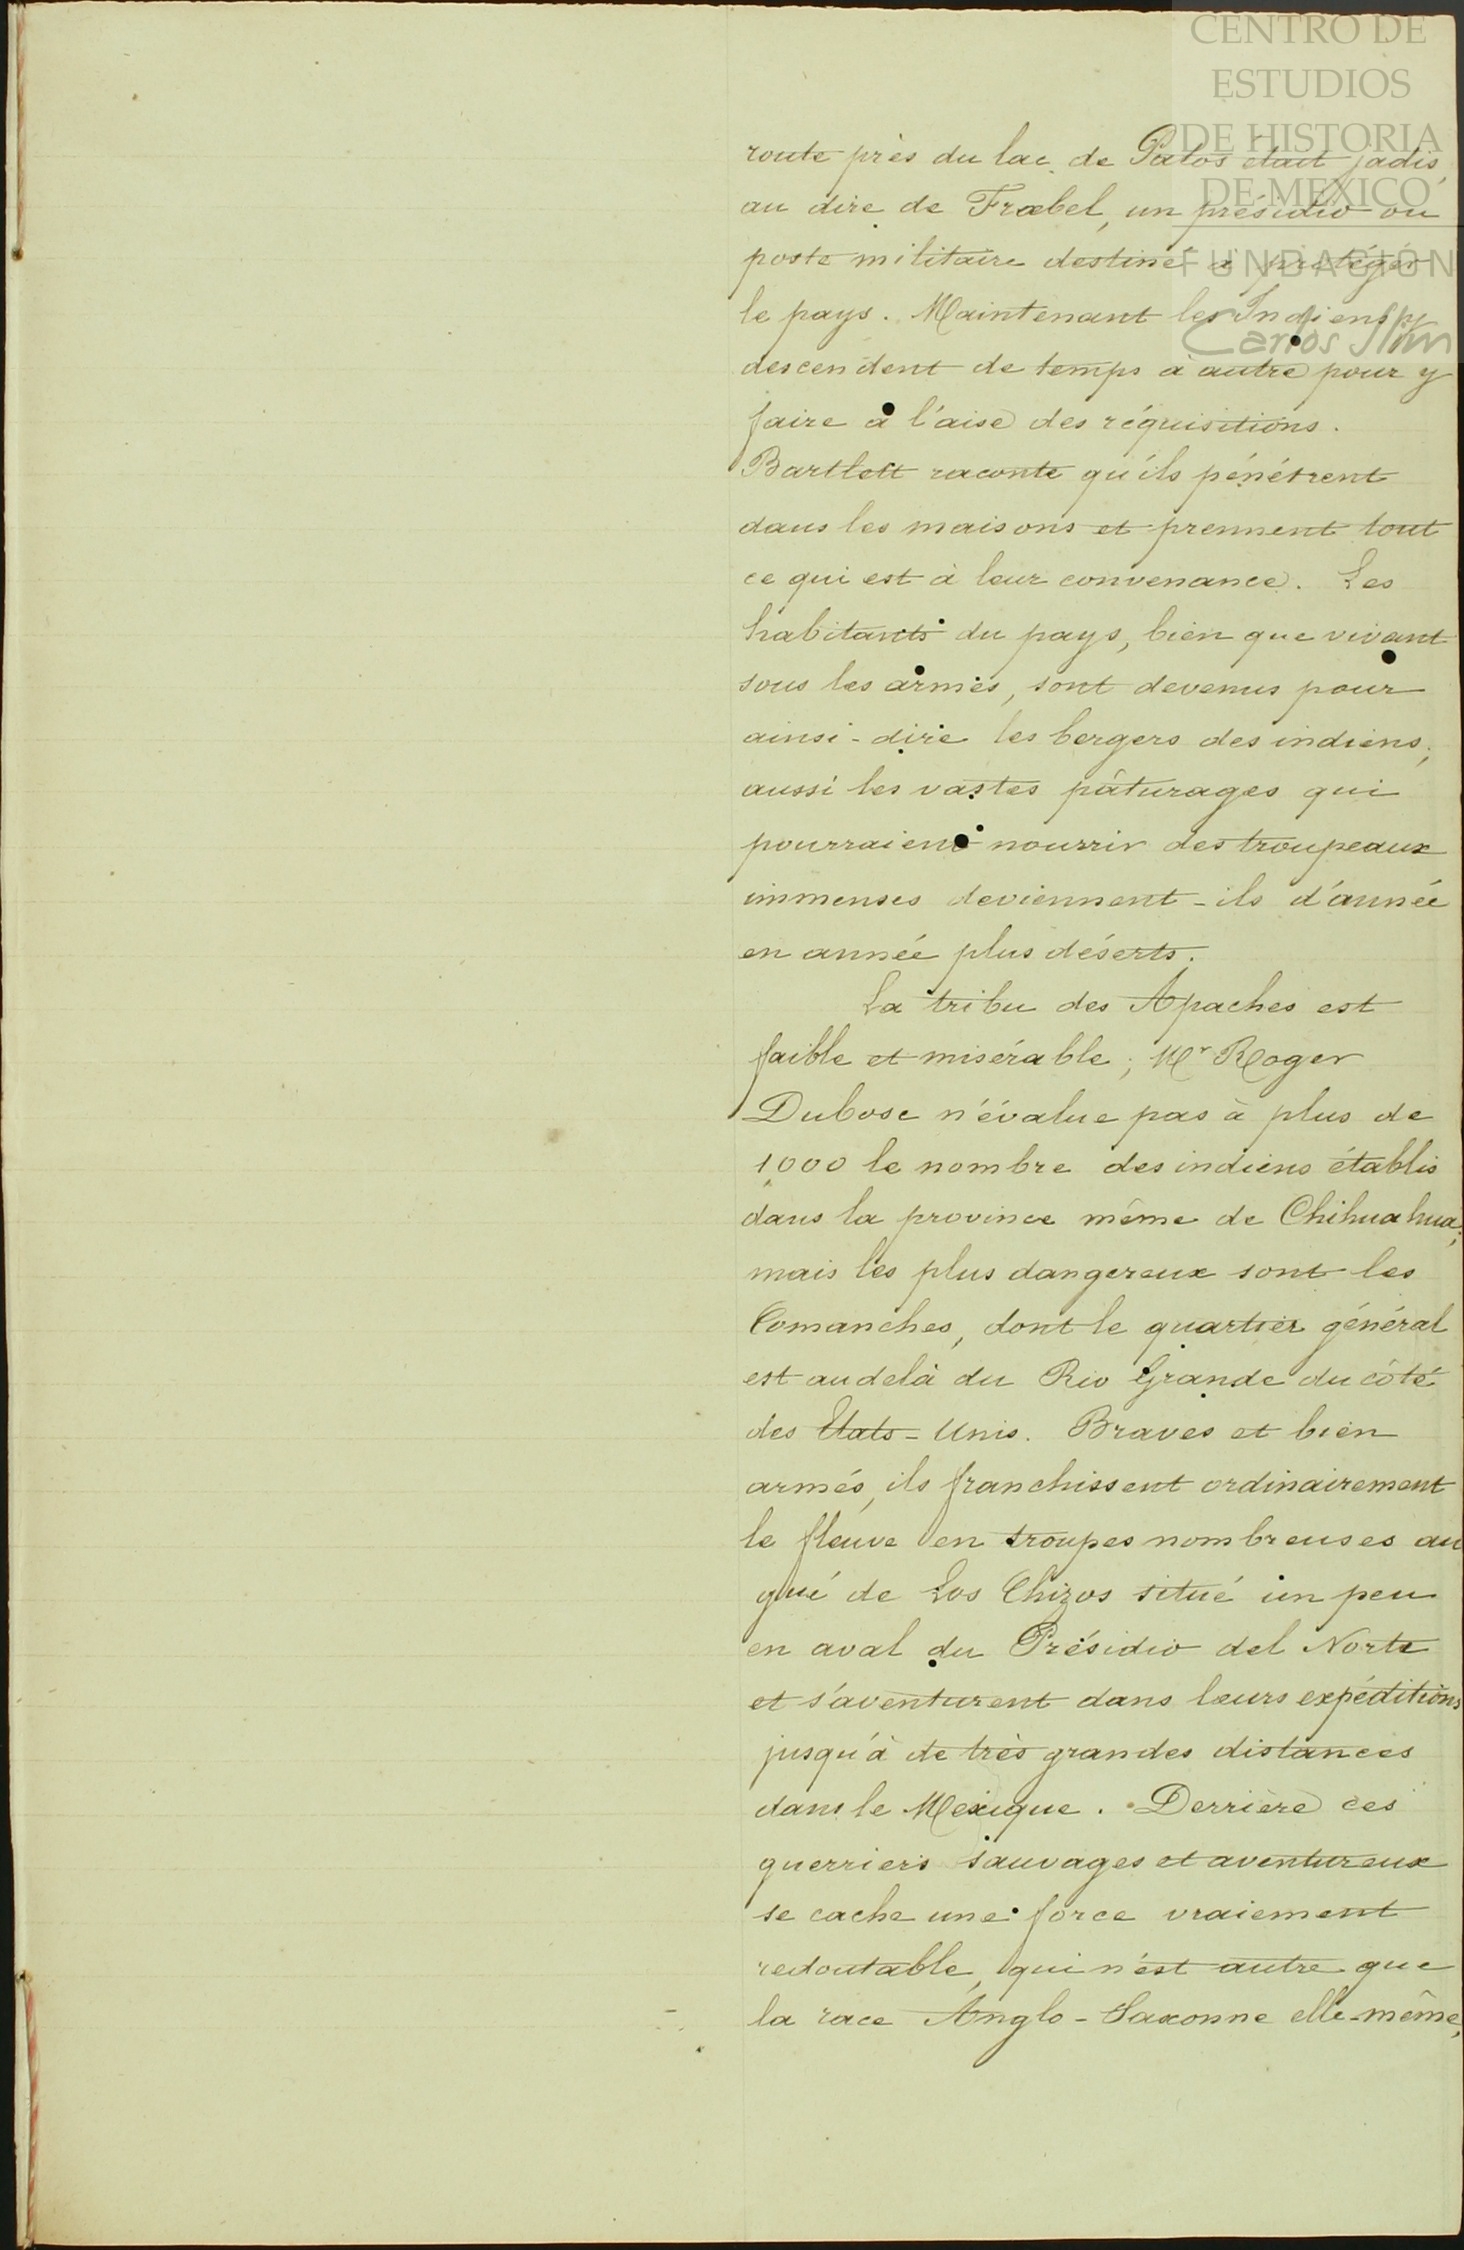 CENTRO DE
ESTUDIOS
DE HISTORIA
DE MEXICO
FUNDACIÓN
Carlos Slim
route près du lac de Patos était jadis,
au dire de Frœbel, un présidio ou
poste militaire destiné à protéger
le pays. Maintenant les Indiens y
descendent de temps à autre pour y
faire à l'aise des réquisitions.
Bartlett raconte qu'ils pénétrent
dans les maisons et prennent tout
ce qui est à leur convenance. Les
habitants du pays, bien que vivant
sous les armes, sont devenus pour
ainsi-dire les bergers des indiens;
aussi les vastes pâturages qui
pourraient nourrir des troupeaux
immenses deviennent-ils d'année
en année plus déserts.
La tribu des Apaches est
faible et misérable; Mr Roger
Dubosc n'évalue pas à plus de
1,000 le nombre des indiens établis
dans la province même de Chihuahua;
mais les plus dangereux sont les
Comanches, dont le quartier général
est audelà du Rio Grande du côté
des Etats-Unis. Braves et bien
armés, ils franchissent ordinairement
le fleuve en troupes nombreuses au
gué de Los Chizos situé un peu
en aval du Présidio del Norte
et s'aventurent dans leurs expéditions
jusqu'à de très grandes distances
dans le Mexique. Derrière ces
guerriers sauvages et aventureux
se cache une force vraiement
redoutable, qui n'est autre que
la race Anglo-Saxonne elle-même,